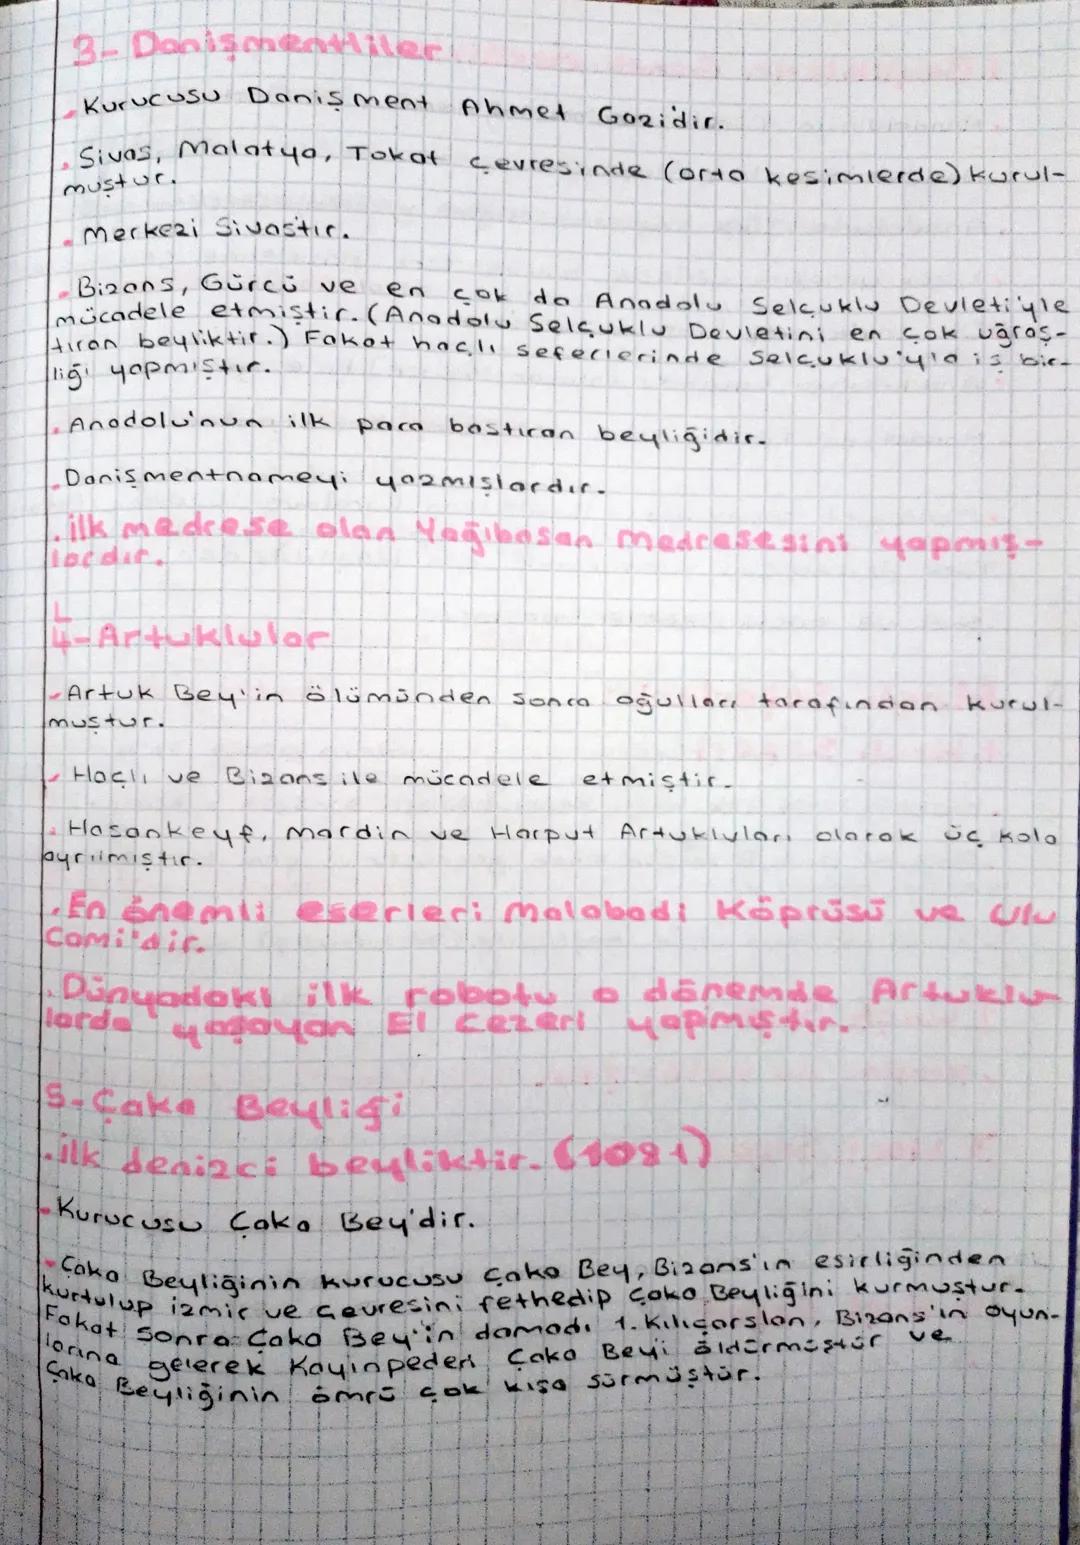 3- Danişmentliler
. Kurucusu Danişment Ahmet Gazi'dir.
. Sivas, Malatya, Tokat çevresinde (orta kesimlerde) kurul-
muştur.
. Merkezi Sivastır.
. Bizans, Gürcü ve en çok da Anadolu Selçuklu Devleti'yle
mücadele etmiştir. (Anadolu Selçuklu Devletini en çok uğraş-
tıran beyliktir.) Fakat haçlı seferlerinde Selçuklu'yla iş bir-
liği yapmıştır.
. Anadolu'nun ilk para bastıran beyliğidir.
. Danişmentnameyi yazmışlardır.
. ilk medrese olan Yağıbasan medresesini yapmış-
lardır.
4- Artuklular
- Artuk Bey'in ölümünden sonra oğulları tarafından kurul-
muştur.
- Haçlı ve Bizans ile mücadele etmiştir.
. Hasankeyf, mardin ve Harput Artukluları olarak üç kola
ayrılmıştır.
. En önemli eserleri Malabadi Köprüsü ve Ulu
Cami'dir.
. Dünyadaki ilk robotu o dönemde Artuklu-
larda yaşayan El Cezeri yapmıştır.
5- Çaka Beyliği
. ilk denizci beyliktir. (1081)
- Kurucusu Çaka Bey'dir.
- Çaka Beyliğinin kurucusu Çaka Bey, Bizans'ın esirliğinden
kurtulup izmir ve çevresini fethedip Çaka Beyliğini kurmuştur.
Fakat sonra Çaka Bey'in damadı 1. Kılıçarslan, Bizans'ın oyun-
larına gelerek Kayınpederi Çaka Beyi öldürmüştür ve
Çaka Beyliğinin ömrü çok kısa sürmüştür.